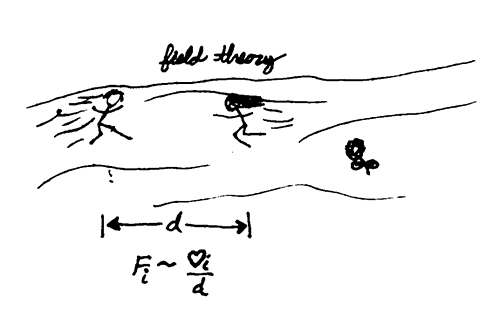 field theory
d
F_i ~ ♡_i/d